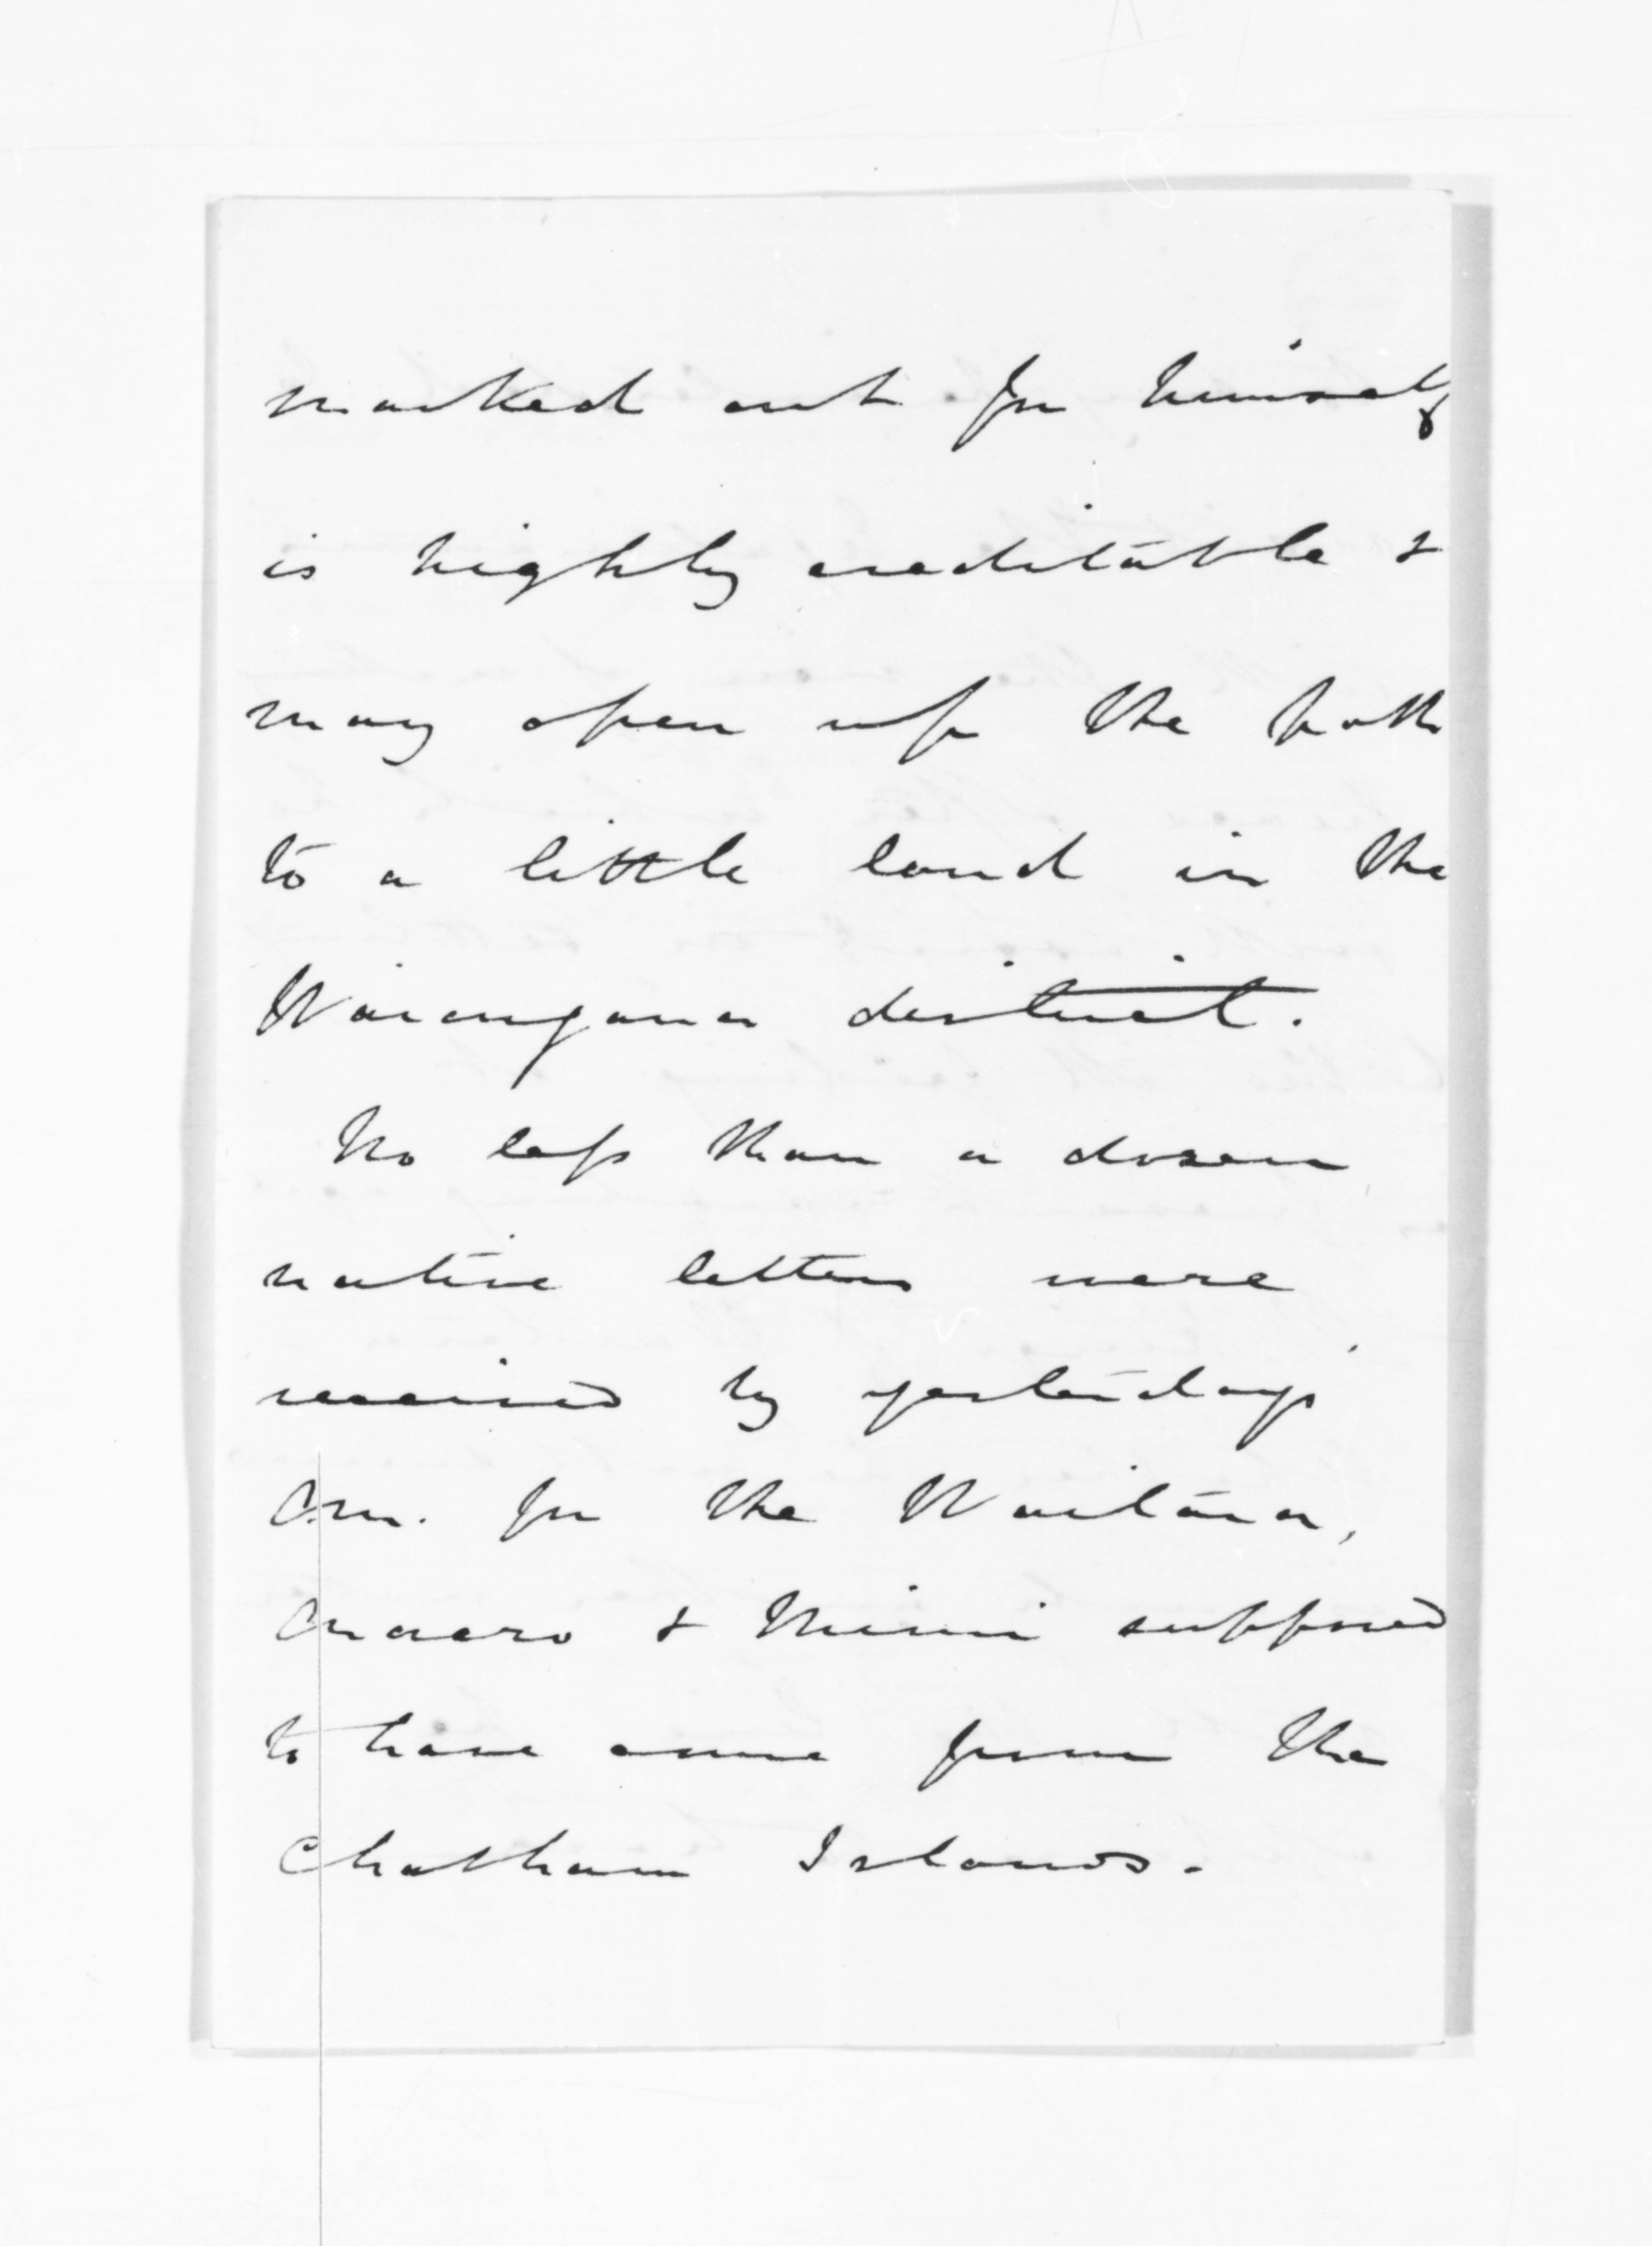 marked out for himself
is highly creditable &
may open up the path
to a little land in the
Waiongana district.
No less than a dozen
native letters were
received by yesterday's
Om. for the Waitara,
Onaero & Mimi supposed
to have come from the
Chatham Islands.